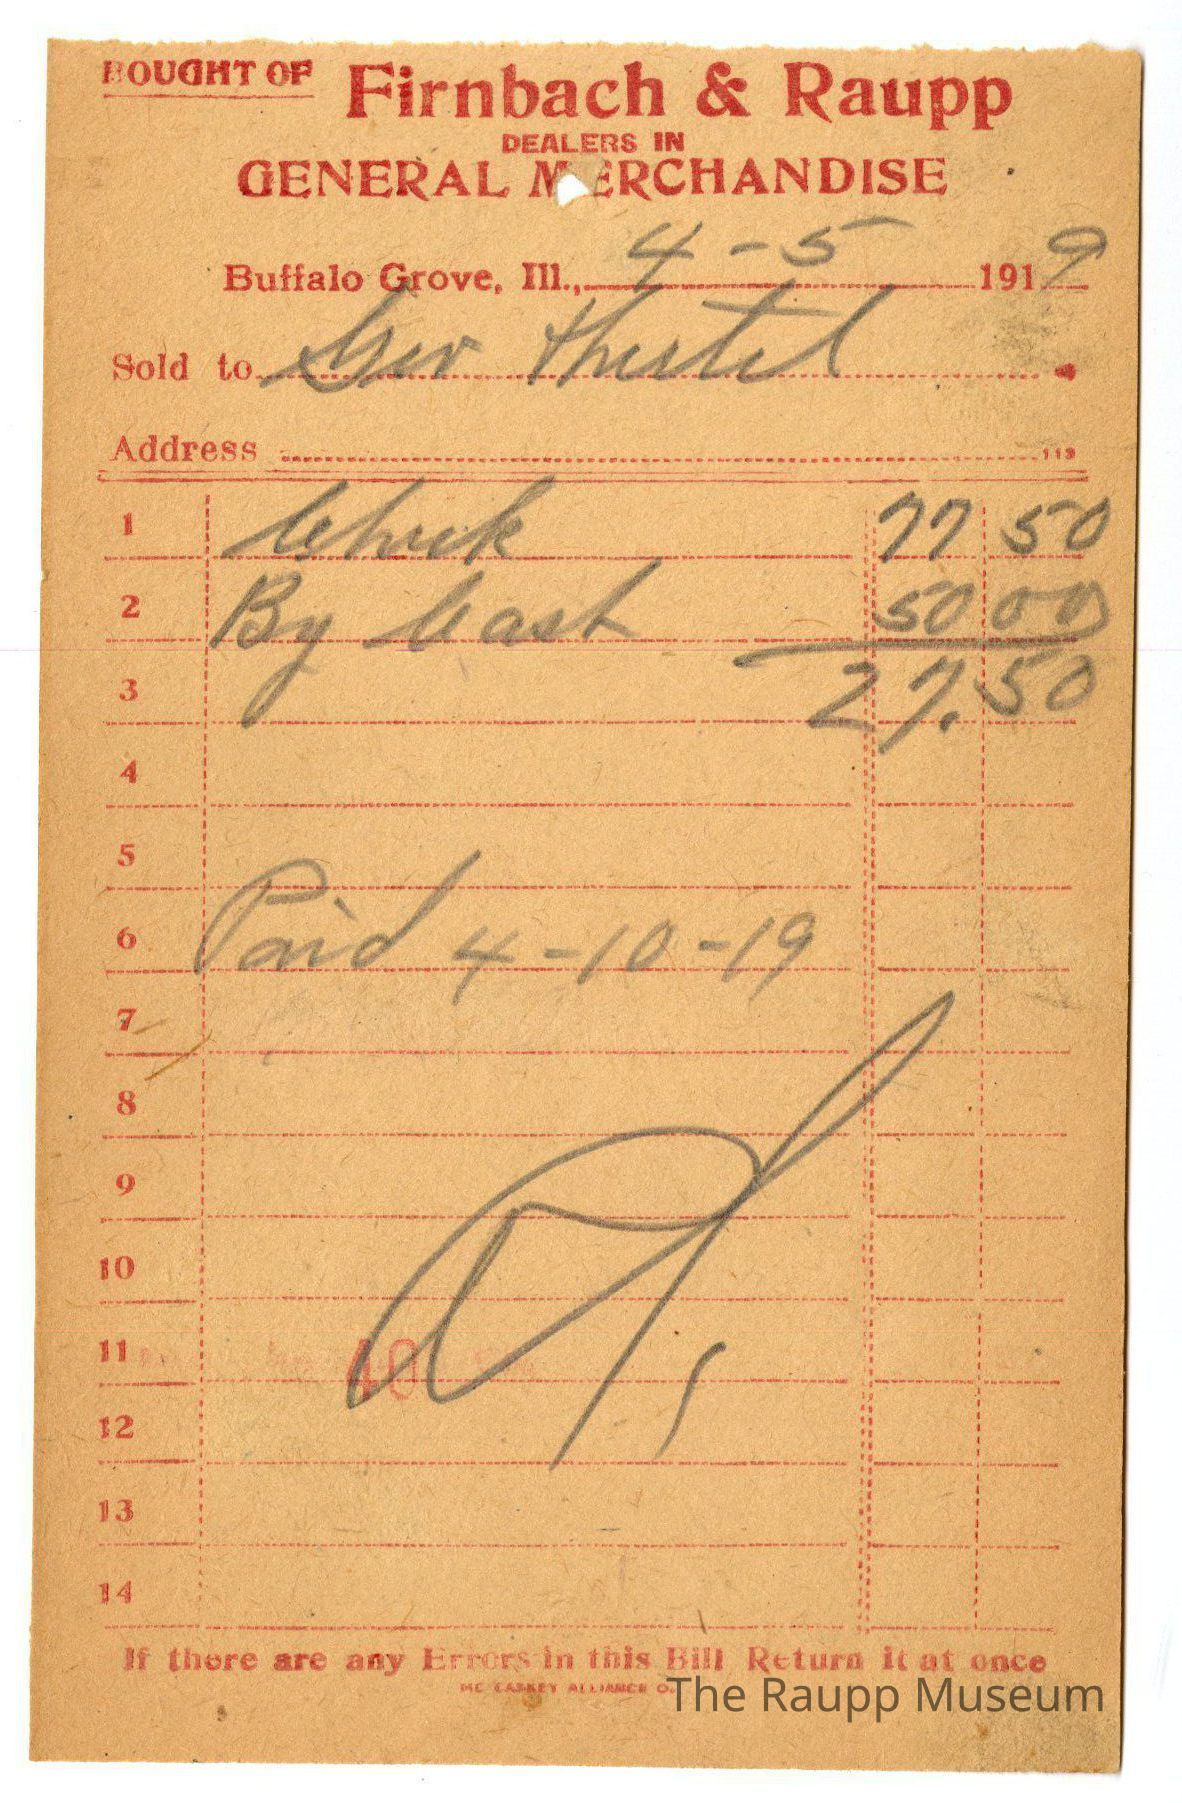 BOUGHT OF Firnbach & Raupp
DEALERS IN
GENERAL MERCHANDISE
Buffalo Grove, Ill., 4-5 1919
Sold to Geo
Address
113
1 Check 77 50
2 By Cash 50 00
3 27.50
4
5
6 Paid 4-10-19
7
8
9
10
11
40
12
13
14
If there are any Errors in this Bill Return it at once
MC CASKEY ALLIANCE O.
The Raupp Museum